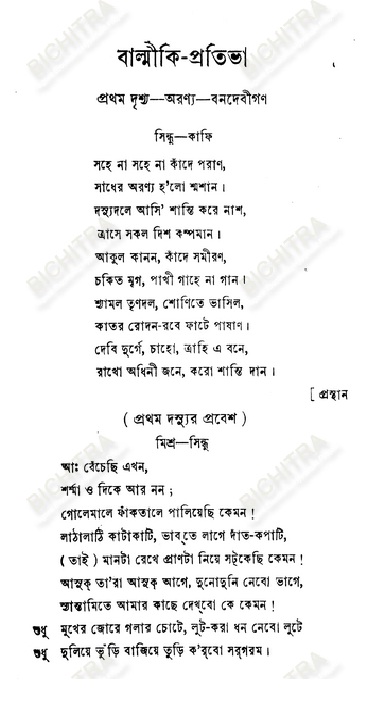 বাল্মীকি-প্রতিভা
প্রথম দৃশ্য—অরণ্য—বনদেবীগণ
সিন্ধু—কাফি
সহে না সহে না কাঁদে পরাণ,
সাধের অরণ্য হ'লো শ্মশান।
দস্যুদলে আসি' শান্তি করে নাশ,
ত্রাসে সকল দিশ কম্পমান।
আকুল কানন, কাঁদে সমীরণ,
চকিত মৃগ, পাখী গাহে না গান।
শ্যামল তৃণদল, শোণিতে ভাসিল,
কাতর রোদন-রবে ফাটে পাষাণ।
দেবি দুর্গে, চাহো, ত্রাহি এ বনে,
রাখো অধিনী জনে, করো শান্তি দান।
[ প্রস্থান
( প্রথম দস্যুর প্রবেশ )
মিশ্র—সিন্ধু
আঃ বেঁচেছি এখন,
শর্ম্মা ও দিকে আর নন;
গোলেমালে ফাঁকতালে পালিয়েছি কেমন!
লাঠালাঠি কাটাকাটি, ভাব্‌তে লাগে দাঁত-কপাটি,
( তাই ) মানটা রেখে প্রাণটা নিয়ে সট্‌কেছি কেমন!
আসুক্ তা'রা আসুক্ আগে, দুনোদুনি নেবো ভাগে,
স্যান্তামিতে আমার কাছে দেখ্‌বো কে কেমন!
শুধু মুখের জোরে গলার চোটে, লুট-করা ধন নেবো লুটে
শুধু দুলিয়ে ভুঁড়ি বাজিয়ে তুড়ি ক'র্‌বো সর্‌গরম।
BICHITRA